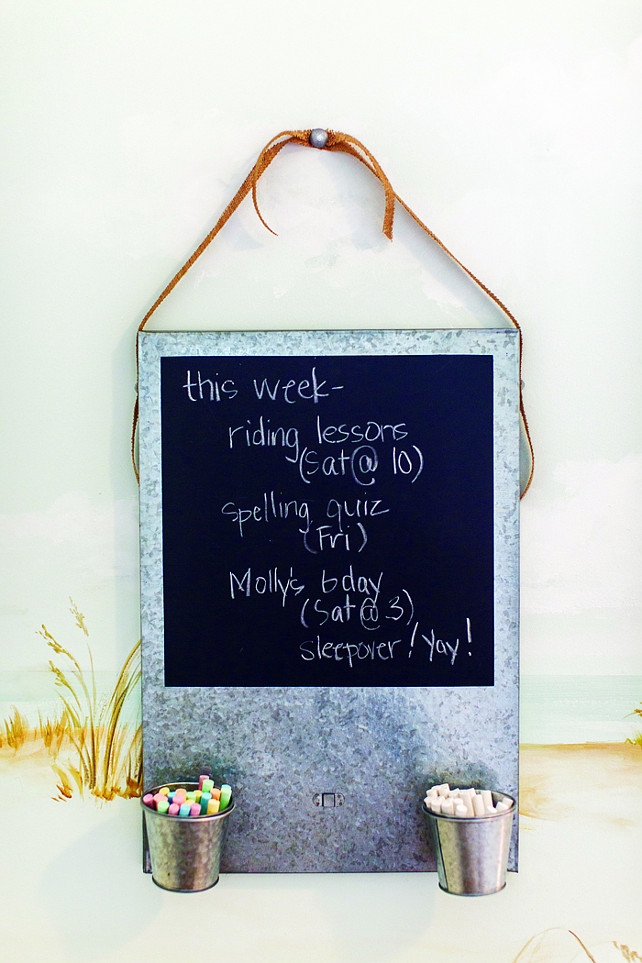 this week-
riding lessons
(Sat @ 10)
spelling quiz
(Fri)
Molly's bday
(Sat @ 3)
sleepover! Yay!